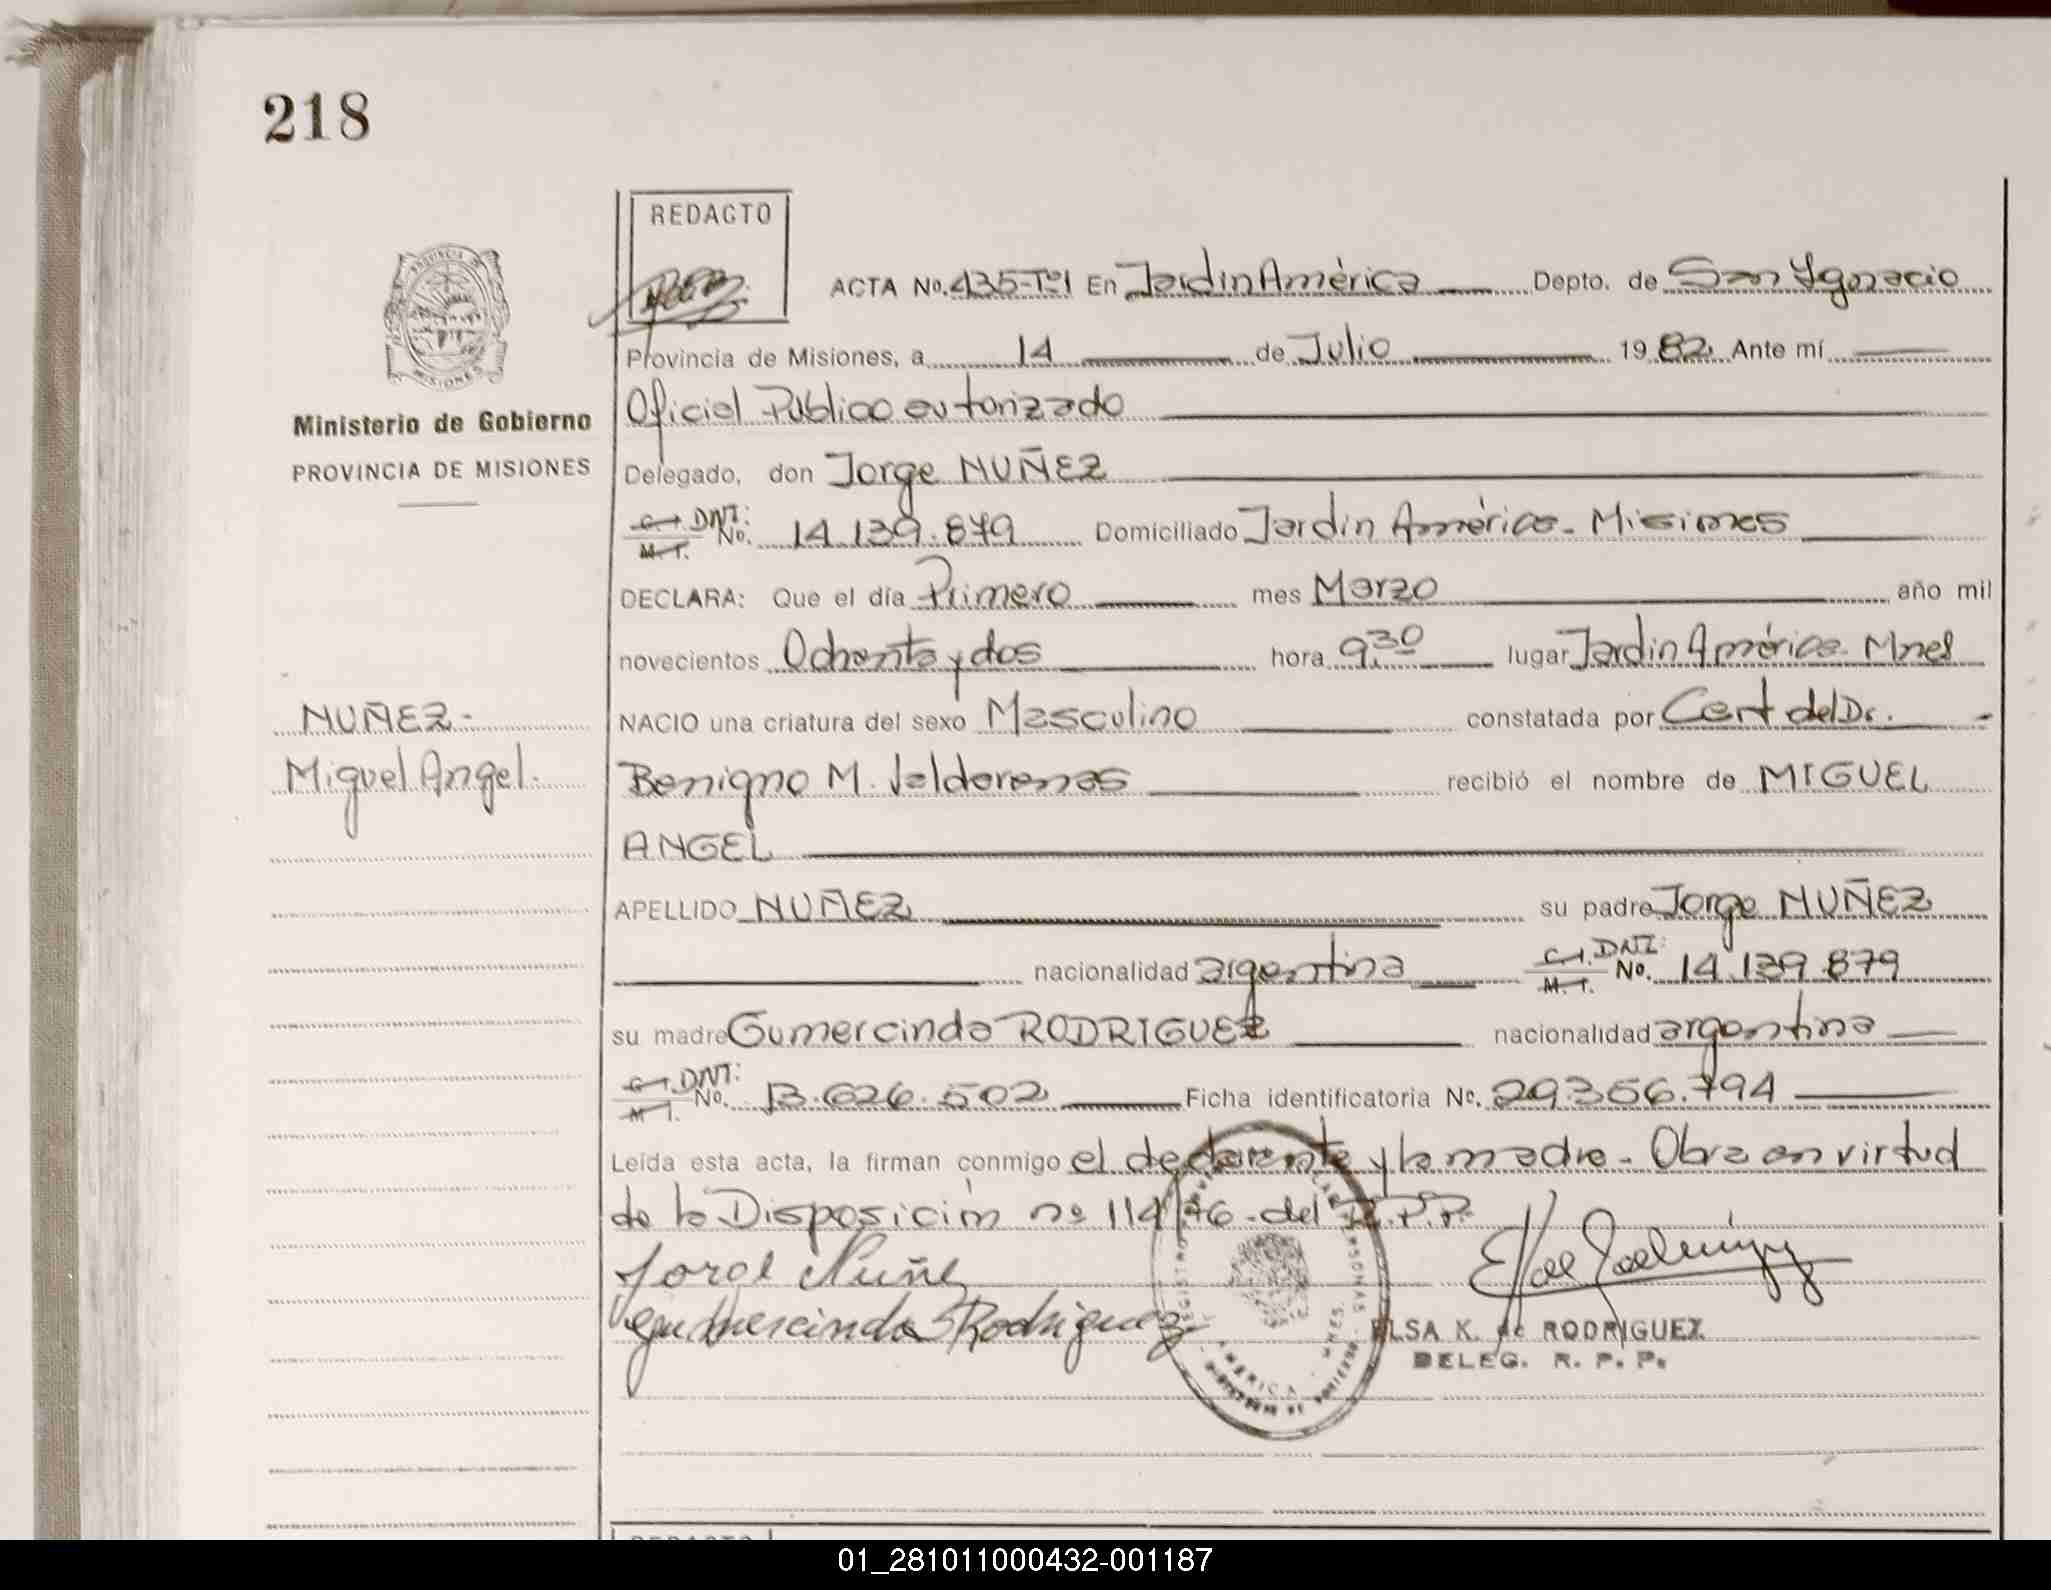 218
REDACTO
ACTA No. 435-Tº1 En Jardin América Depto. de San Ygnacio
Provincia de Misiones, a 14 de Julio 1982 Ante mí
Oficial Publico autorizado
Delegado, don Jorge NUÑEZ
C.I. DNI: M.I. No. 14.139.879 Domiciliado Jardin América - Misiones
DECLARA: Que el día Primero mes Marzo año mil
novecientos Ochenta y dos hora 9.30 lugar Jardin América Mnes
NACIO una criatura del sexo Masculino constatada por Cert del Dr.
Benigno M. Valdorenas recibió el nombre de MIGUEL
ANGEL
APELLIDO NUÑEZ su padre Jorge NUÑEZ
nacionalidad argentina C.I. DNI: M.I. No. 14.139.879
su madre Gumercinda RODRIGUEZ nacionalidad argentina
C.I. DNI: M.I. No. 13.626.502 Ficha identificatoria No. 29.356.794
Leída esta acta, la firman conmigo el declarante y la madre - Obra en virtud
de la Disposición nº 114/76 - del R.P.P.
Jorge Nuñez
Gumercinda Rodriguez
ELSA K. de RODRIGUEZ
DELEG. R. P. P.
PROVINCIA DE
MISIONES
Ministerio de Gobierno
PROVINCIA DE MISIONES
NUÑEZ -
Miguel Angel.
01_281011000432-001187